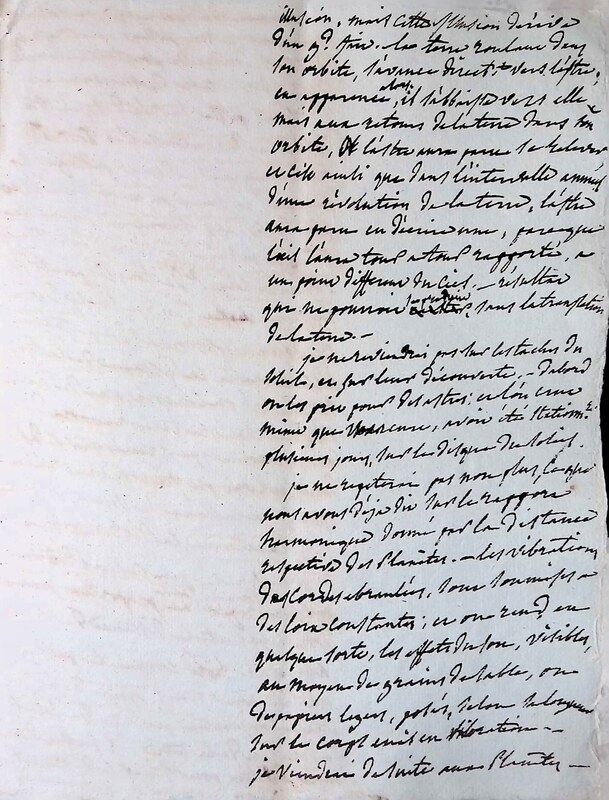 illusion, mais cette illusion dérive
d'un gd. fire. la terre roulant dans
son orbite, s'avance directt. vers l'astre,
en apparence, alors il s'abbaisse vers elle
mais au retour de la terre dans son
orbite, l'astre aura paru se relever,
et c'est ainsi que dans l'intervalle annuel
d'une révolution de la terre, l'astre
aura paru en décrire une, parce que
l'œil l'aura tour a tour rapporté, a
un point different du ciel. — résultat
que ne pourroit se produire sans la translation
de la terre. —
je ne reviendrai pas sur les taches du
soleil, et sur leur découverte. — D'abord
on les prit pour des astres; et l'on crut
même que Mercure, avoit été stationn.
plusieurs jours, sur le disque du soleil.
je ne repeterai pas non plus, ce que
nous avons déja dit sur le rapport
harmonique donné par la distance
respective des Planètes. — les vibrations
des cordes ebranlées, sont soumises a
des loix constantes; et on rend, en
quelque sorte, les effets du son, visibles,
au moyen de grains de sable, ou
de papiers legers, posés, selon la longueur
sur le corps mis en vibration —
je viendrai de suite aux Planètes —